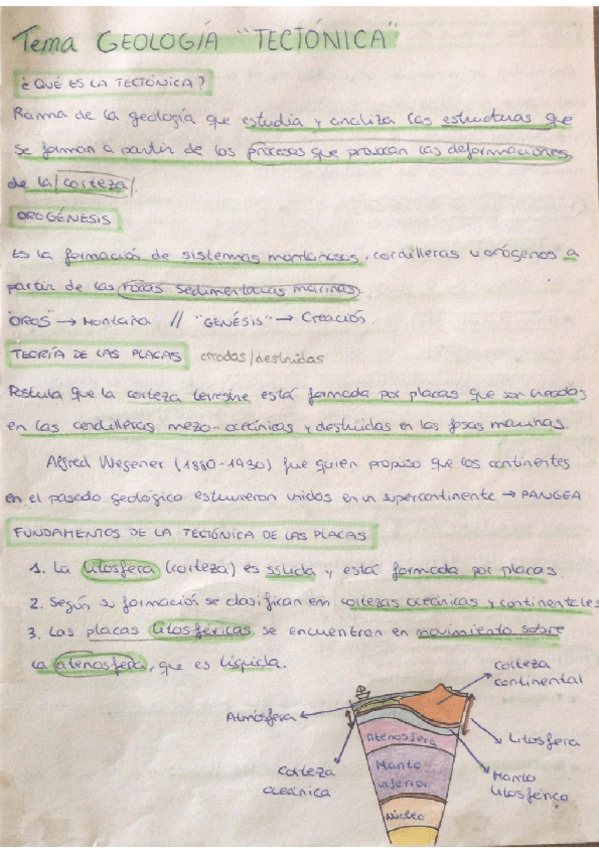 Tema GEOLOGÍA "TECTÓNICA"
¿QUÉ ES LA TECTÓNICA?
Rama de la geología que estudia y analiza las estructuras que
se forman a partir de los procesos que provocan las deformaciones
de la corteza.
OROGÉNESIS
Es la formación de sistemas montañosos, cordilleras u orógenos a
partir de las rocas sedimentarias marinas.
"OROS" → Montaña // "GENÉSIS" → Creación.
TEORÍA DE LAS PLACAS creadas/destruidas
Postula que la corteza terrestre está formada por placas que son creadas
en las cordilleras mezo-oceánicas y destruidas en las fosas marinas.
Alfred Wegener (1880-1930) fue quien propuso que los continentes
en el pasado geológico estuvieron unidos en un supercontinente → PANGEA
FUNDAMENTOS DE LA TECTÓNICA DE LAS PLACAS
1. La litosfera (corteza) es sólida y está formada por placas.
2. Según su formación se clasifican em cortezas oceánicas y continentales
3. Las placas litosféricas se encuentran en movimiento sobre
la atenosfera, que es líquida.
corteza
continental
Atmósfera
Litosfera
Atenosfera
Manto
inferior
Manto
litosférico
corteza
oceánica
Núcleo